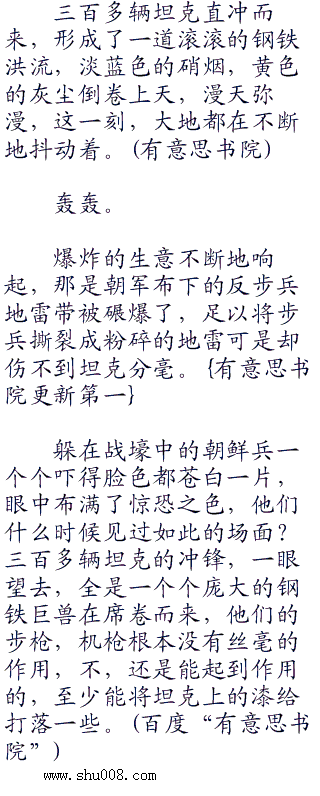 三百多辆坦克直冲而
来，形成了一道滚滚的钢铁
洪流，淡蓝色的硝烟，黄色
的灰尘倒卷上天，漫天弥
漫，这一刻，大地都在不断
地抖动着。（有意思书院）
轰轰。
爆炸的生意不断地响
起，那是朝军布下的反步兵
地雷带被碾爆了，足以将步
兵撕裂成粉碎的地雷可是却
伤不到坦克分毫。{有意思书
院更新第一}
躲在战壕中的朝鲜兵一
个个吓得脸色都苍白一片，
眼中布满了惊恐之色，他们
什么时候见过如此的场面？
三百多辆坦克的冲锋，一眼
望去，全是一个个庞大的钢
铁巨兽在席卷而来，他们的
步枪，机枪根本没有丝毫的
作用，不，还是能起到作用
的，至少能将坦克上的漆给
打落一些。（百度“有意思书
院”）
www.shu008.com